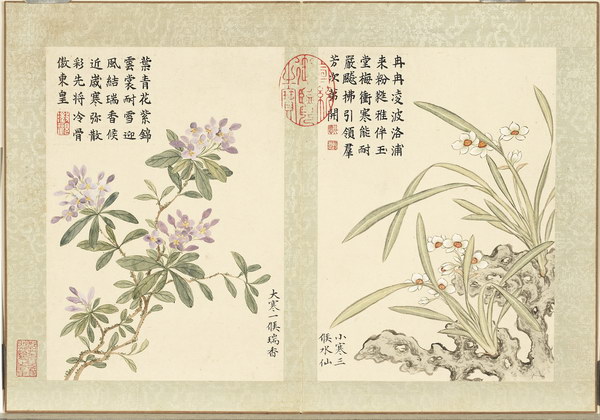 冉冉凌波洛浦
来粉雅伴玉
堂梅衝寒能耐
嚴颷拂引領羣
芳次第開
小寒三
候水仙
乾隆御覽之寶
葉青花紫錦
雲裳耐雪迎
風結瑞香候
近歲寒弥散
彩先将冷骨
傲東皇
大寒一候瑞香